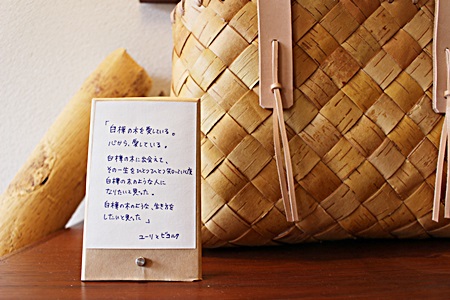 「白樺の木を愛している。
心から、愛している。
白樺の木に出会えて、
その一生をひとつひとつ
白樺の木のような人に
なりたいと思った。
白樺の木のような、生き方を
したいと思った。」
ユーリとピヨルク